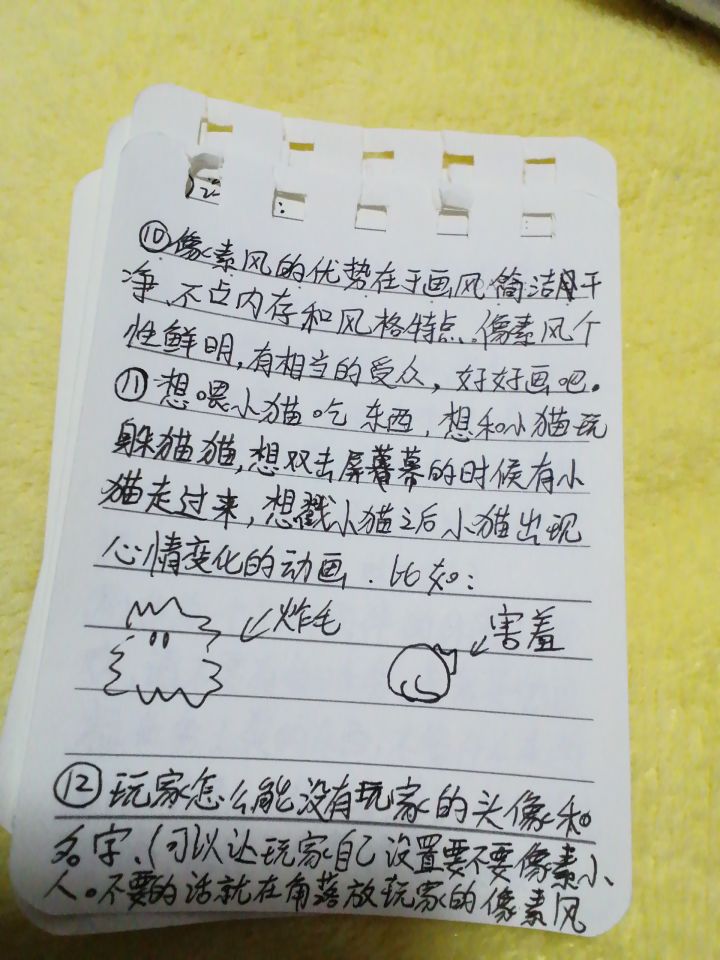 ⑩像素风的优势在于画风简洁干
净、不占内存和风格特点。像素风个
性鲜明,有相当的受众,好好画吧。
⑪想喂小猫吃东西,想和小猫玩
躲猫猫,想双击屏幕的时候有小
猫走过来,想戳小猫之后小猫出现
心情变化的动画.比如:
炸毛
害羞
⑫玩家怎么能没有玩家的头像和
名字、(可以让玩家自己设置要不要像素小
人。不要的话就在角落放玩家的像素风